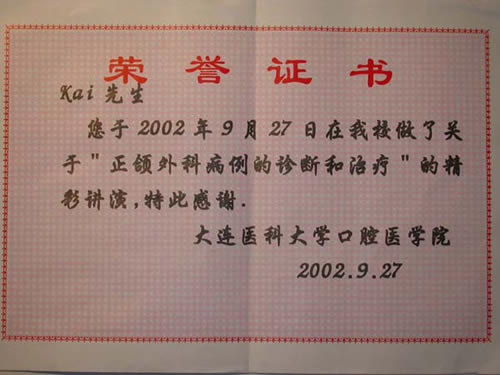 荣誉证书
Kai 先生
您于 2002 年 9 月 27 日在我校做了关
于"正颌外科病例的诊断和治疗"的精
彩讲演,特此感谢.
大连医科大学口腔医学院
2002.9.27